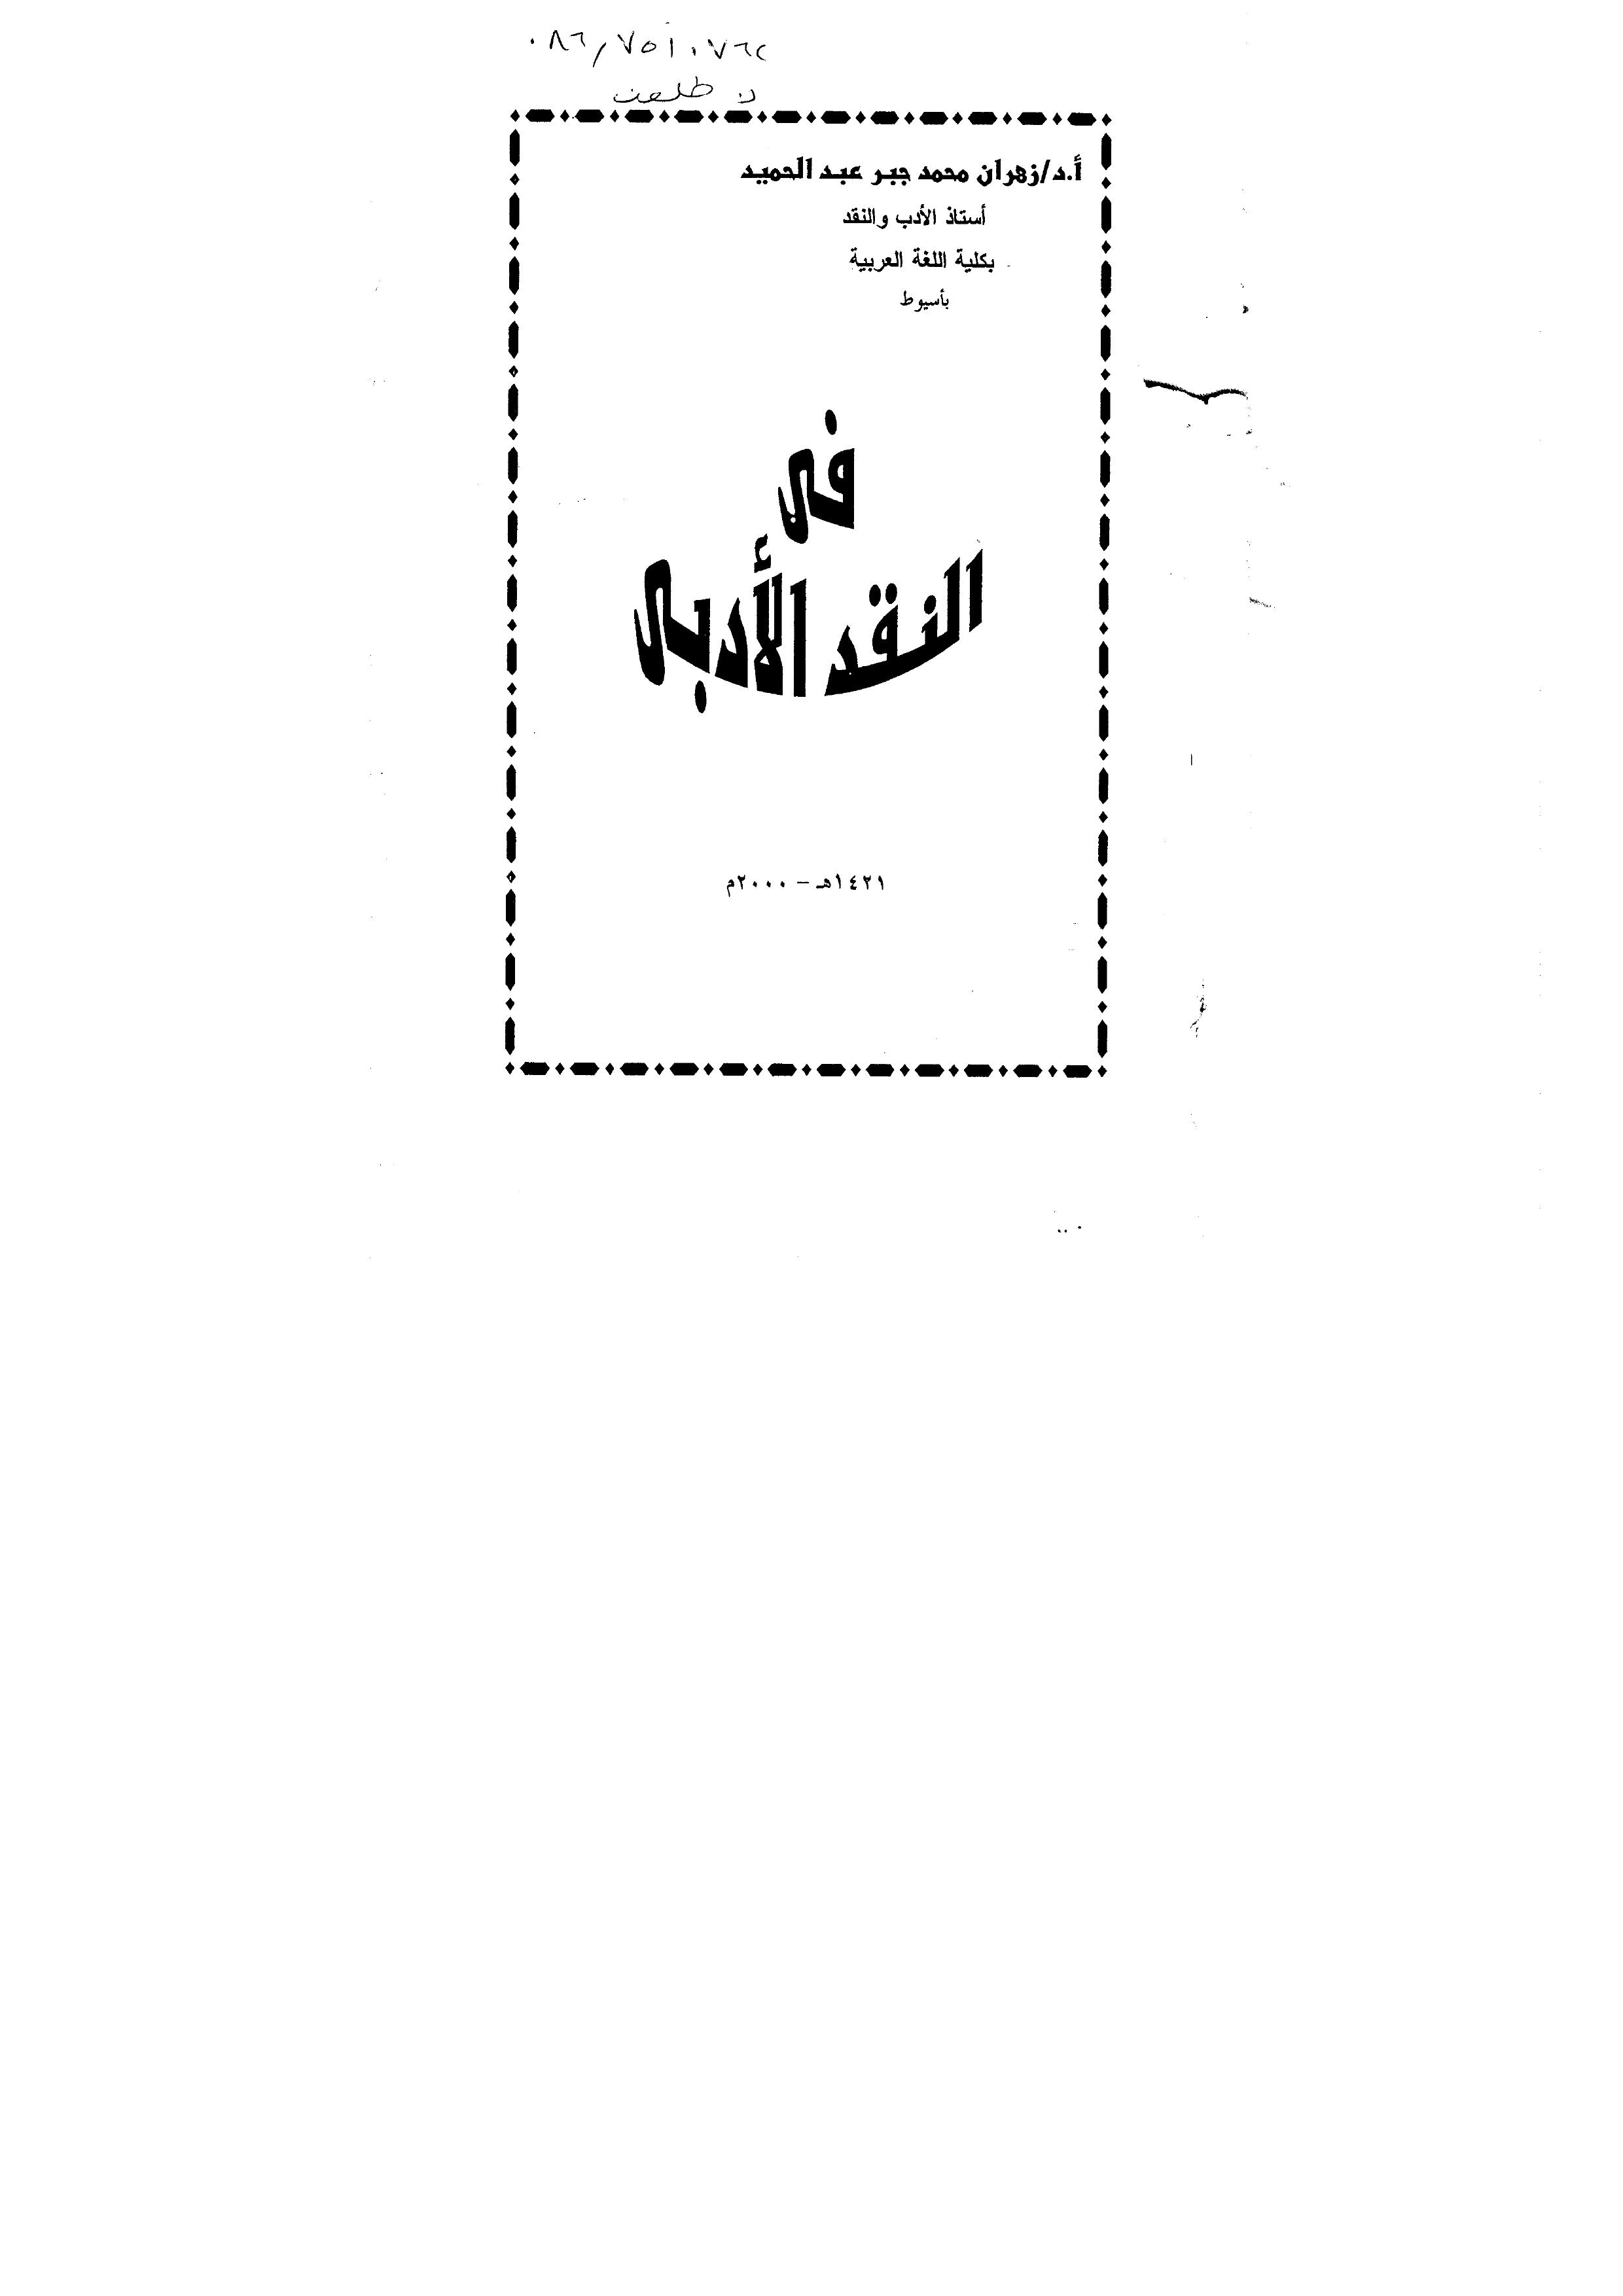 ٠٨٦/٧٥١٠٧٦٢
د طلعت
أ.د/زهران محمد جبر عبد الحميد
أستاذ الأدب والنقد
بكلية اللغة العربية
بأسيوط
في
النقد الأدبى
١٤٢١هـ - ٢٠٠٠م